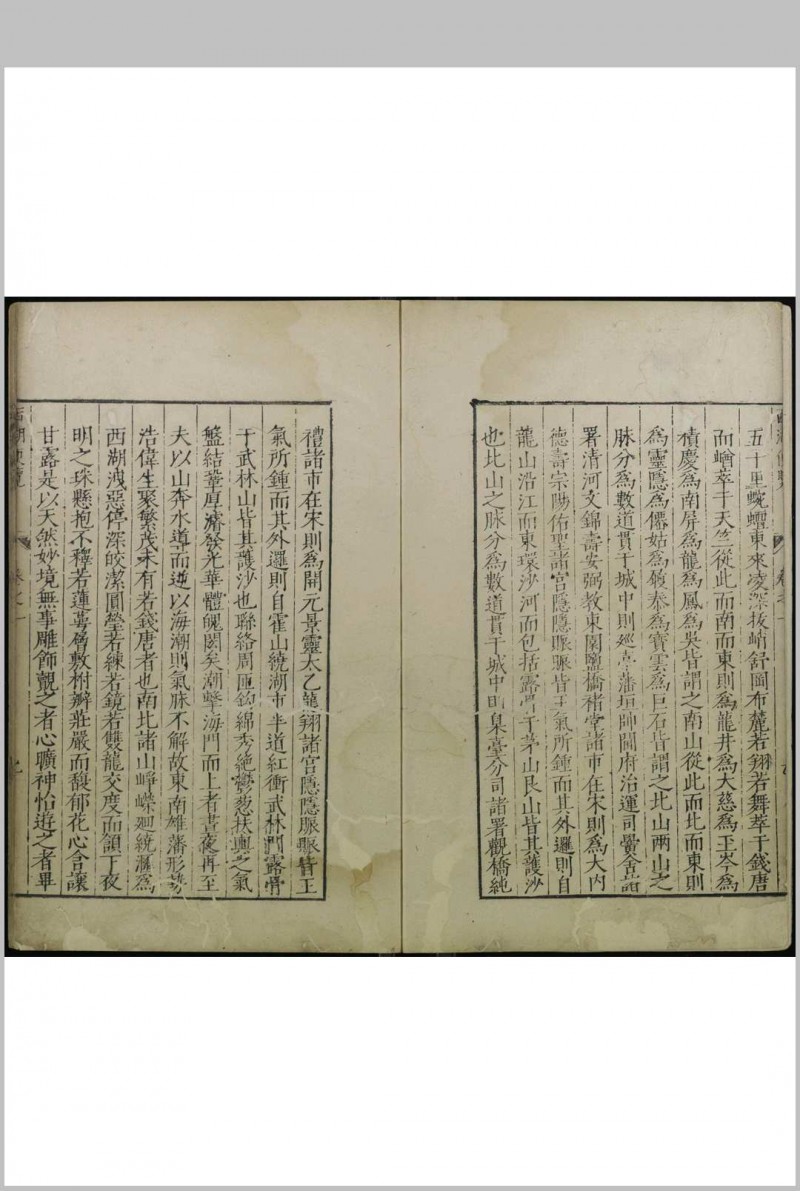 五十里蜿蟺東來凌深拔峭舒岡布麓若翔若舞萃于錢唐
而崷崒于天竺從此而南而東則爲龍井爲大慈爲玉岑爲
積慶爲南屏爲龍爲鳳爲吳皆謂之南山從此而北而東則
爲靈隱爲僊姑爲履泰爲寶雲爲巨石皆謂之北山兩山之
脉分爲數道貫于城中則巡臺藩垣帥閫府治運司黌舍諸
署清河文錦壽安弼教東園鹽橋褚堂諸市在宋則爲大內
德壽宗陽佑聖諸宮隱隱賑賑皆王氣所鍾而其外邏則自
龍山沿江而東環沙河而包括露骨于茅山艮山皆其護沙
也北山之脉分爲數道貫于城中則臬臺分司諸署觀橋純
西湖遊覽 卷之一
禮諸市在宋則爲開元景靈太乙龍翔諸宮隱隱賑賑皆王
氣所鍾而其外邏則自霍山繞湖市半道紅衝武林門露骨
于武林山皆其護沙也聯絡周匝鈎綿秀絶鬱葱扶輿之氣
盤結鞏厚濬發光華體魄閎矣潮擊海門而上者晝夜再至
夫以山奔水導而逆以海潮則氣脉不解故東南雄藩形勢
浩偉生聚繁茂未有若錢唐者也南北諸山崢嶸廻繞滙爲
西湖洩惡停深皎潔圓瑩若練若鏡若雙龍交度而頷下夜
明之珠懸抱不釋若蓮萼層敷柎瓣莊嚴而馥郁花心含讓
甘露是以天然妙境無事雕飾覿之者心曠神怡遊之者畢
西湖遊覽 卷之一